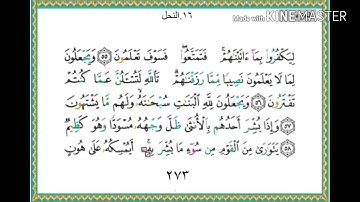 ١٦.النحل
Made with KINEMASTER
لِيَكْفُرُوا۟ بِمَآ ءَاتَيْنَٰهُمْ ۚ فَتَمَتَّعُوا۟ ۖ فَسَوْفَ تَعْلَمُونَ ٥٥ وَيَجْعَلُونَ
لِمَا لَا يَعْلَمُونَ نَصِيبًا مِّمَّا رَزَقْنَٰهُمْ ۗ تَٱللَّهِ لَتُسْـَٔلُنَّ عَمَّا كُنتُمْ
تَفْتَرُونَ ٥٦ وَيَجْعَلُونَ لِلَّهِ ٱلْبَنَٰتِ سُبْحَٰنَهُۥ ۙ وَلَهُم مَّا يَشْتَهُونَ
٥٧ وَإِذَا بُشِّرَ أَحَدُهُم بِٱلْأُنثَىٰ ظَلَّ وَجْهُهُۥ مُسْوَدًّا وَهُوَ كَظِيمٌ
٥٨ يَتَوَٰرَىٰ مِنَ ٱلْقَوْمِ مِن سُوٓءِ مَا بُشِّرَ بِهِۦٓ ۚ أَيُمْسِكُهُۥ عَلَىٰ هُونٍ
٢٧٣